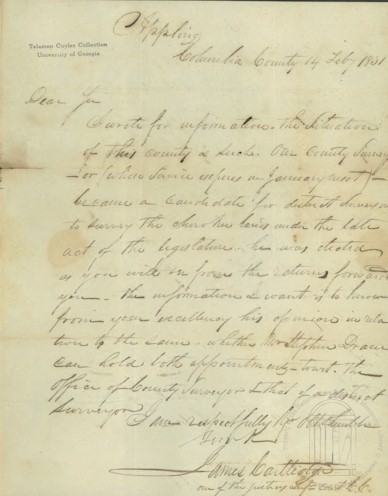 Telamon Cuyler Collection
University of Georgia
Appling
Columbia County 14 Feby 1831
Dear Sir
I wrote for information. The Situation
of this county is such. Our County Survey
or (whose Service expires in January next)
became a candidate for district surveyor
to survey the cherokee lands under the late
act of the legislature. he was elected
as you will see from the returns forward
you. The information I want is to know
from your excellency his opinion in rela
tion to the same. whether Mr Stephen Drane
can hold both appointments. The
office of County Surveyor & that of a district
Surveyor
I am respectfully yr Obt Humble
James Cartledge
one of the justices